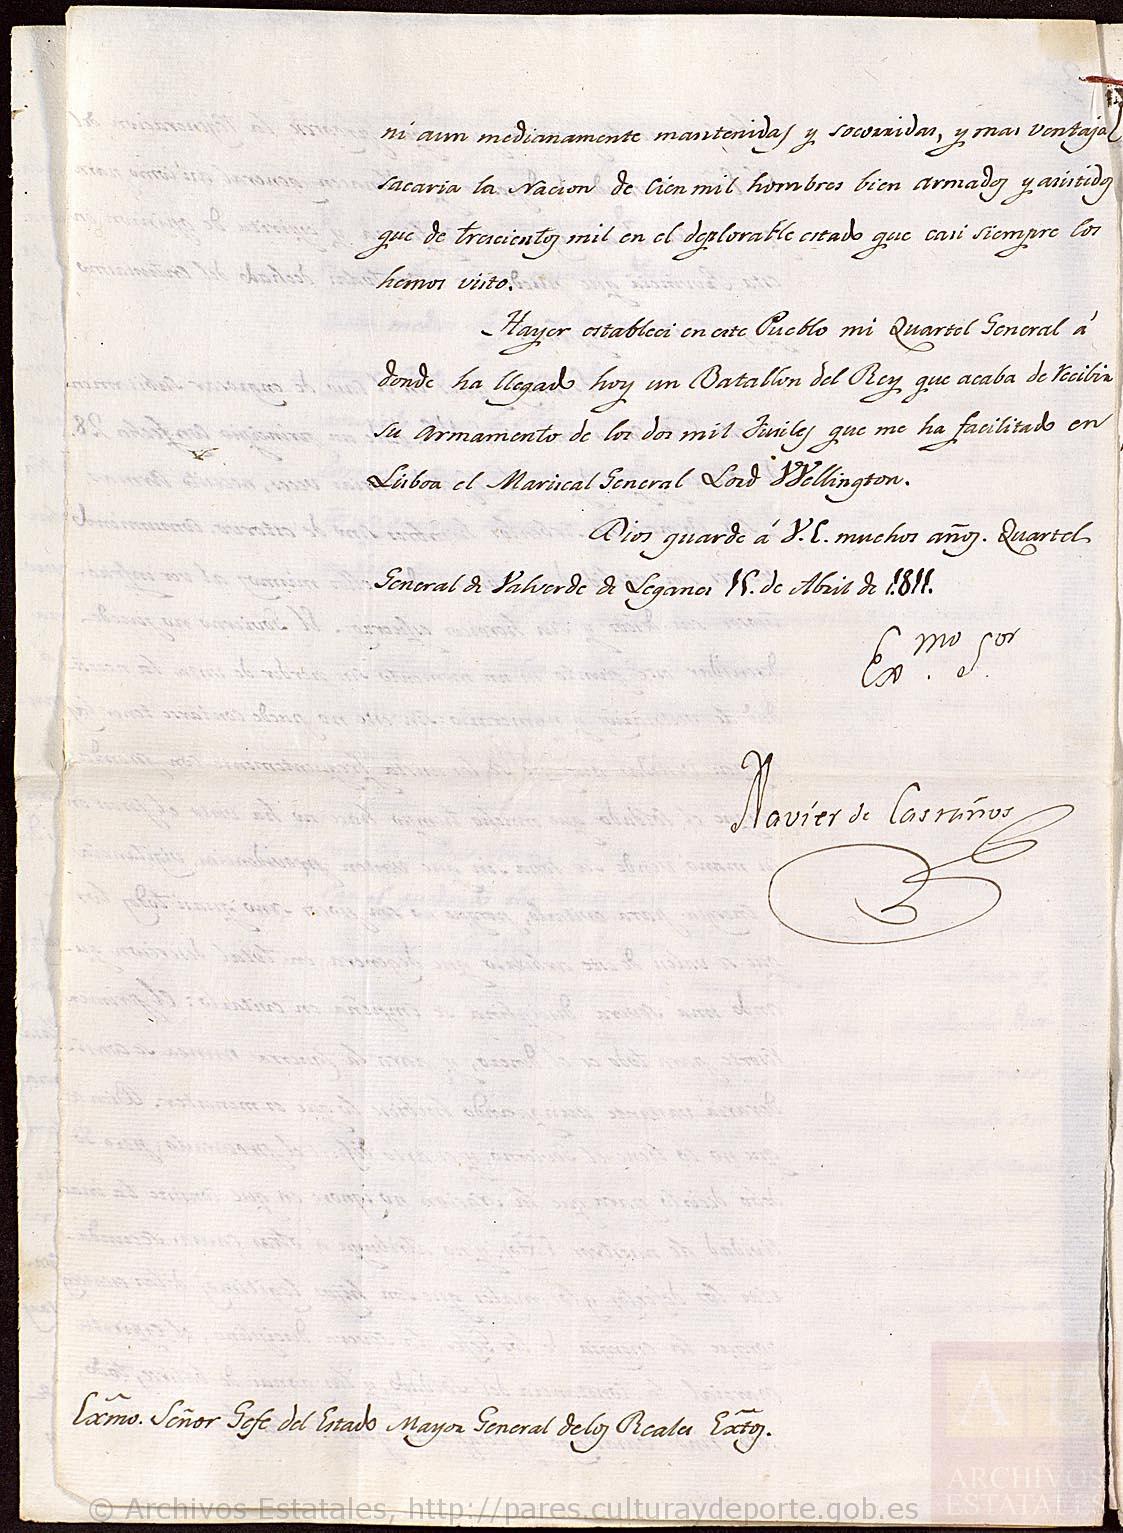 ni aun medianamente mantenidas y socorridas, y mas ventajas
sacaria la Nacion de Cien mil hombres bien armados y asistidos
que de trescientos mil en el deplorable estado que casi siempre los
hemos visto.
Hayer estableci en este Pueblo mi Quartel General á
donde ha llegado hoy un Batallon del Rey que acaba de recibir
su armamento de los dos mil Fusiles que me ha facilitado en
Lisboa el Mariscal General Lord Wellington.
Dios guarde á V.E. muchos años. Quartel
General de Valverde de Leganes 15. de Abril de 1811.
Exmo. Sor.
Xavier de Castaños
Exmo. Señor Gefe del Estado Mayor General de los Reales Extos.
© Archivos Estatales, http://pares.culturaydeporte.gob.es
ARCHIVOS
ESTATALES